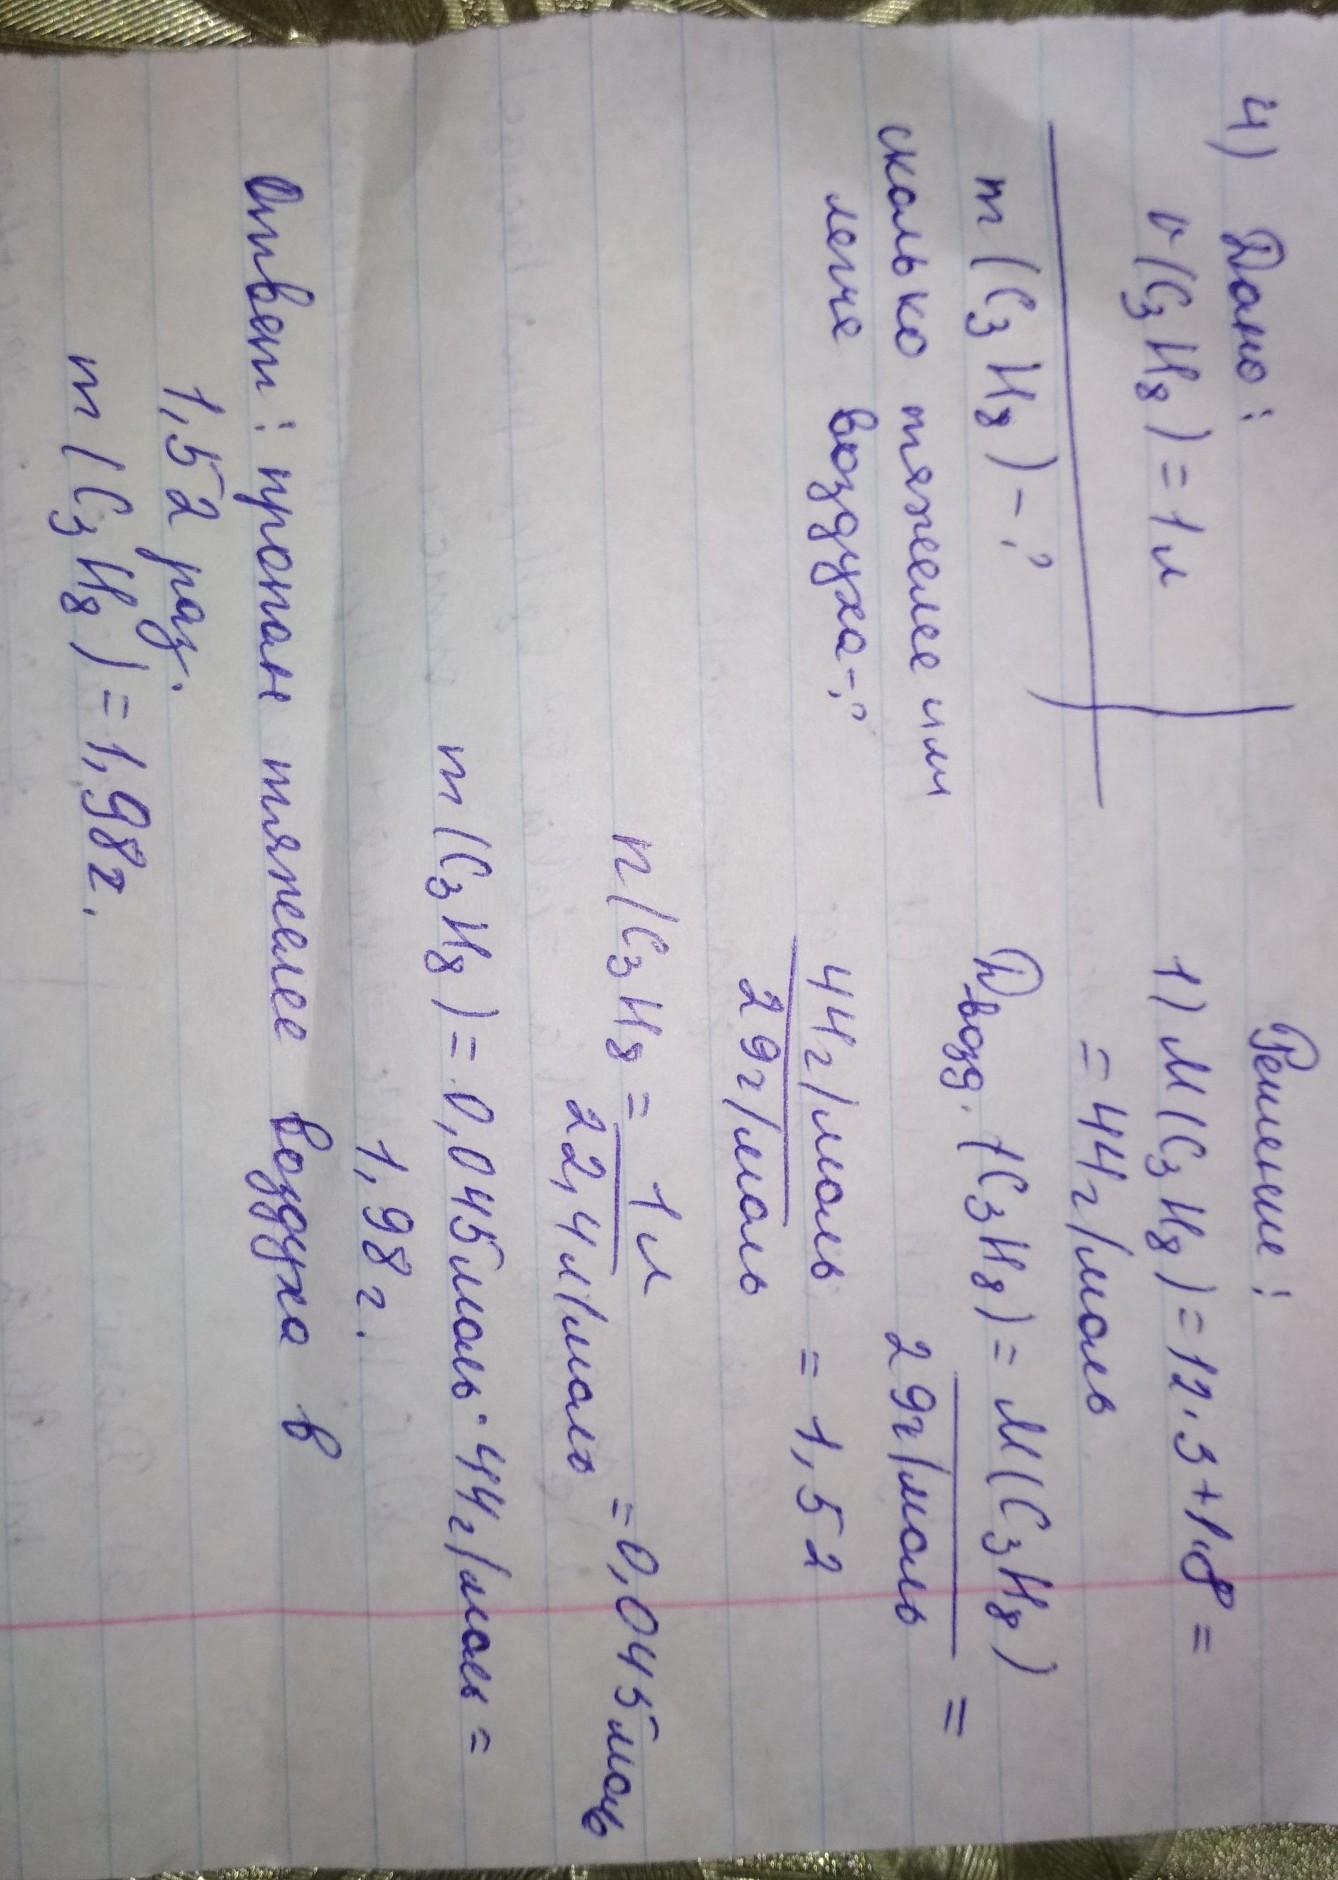 4) Дано:
v(C3H8)=1л
m(C3H8)-?
сколько тяжелее или
легче воздуха-?
Решение:
1) M(C3H8)=12·3+1·8=
=44г/моль
Dвозд.(C3H8)=M(C3H8)
29г/моль =
44г/моль = 1,52
29г/моль
n(C3H8= 1л =0,045моль
22,4л/моль
m(C3H8)=0,045моль·44г/моль=
1,98г.
Ответ: пропан тяжелее воздуха в
1,52 раз.
m(C3H8)=1,98г.